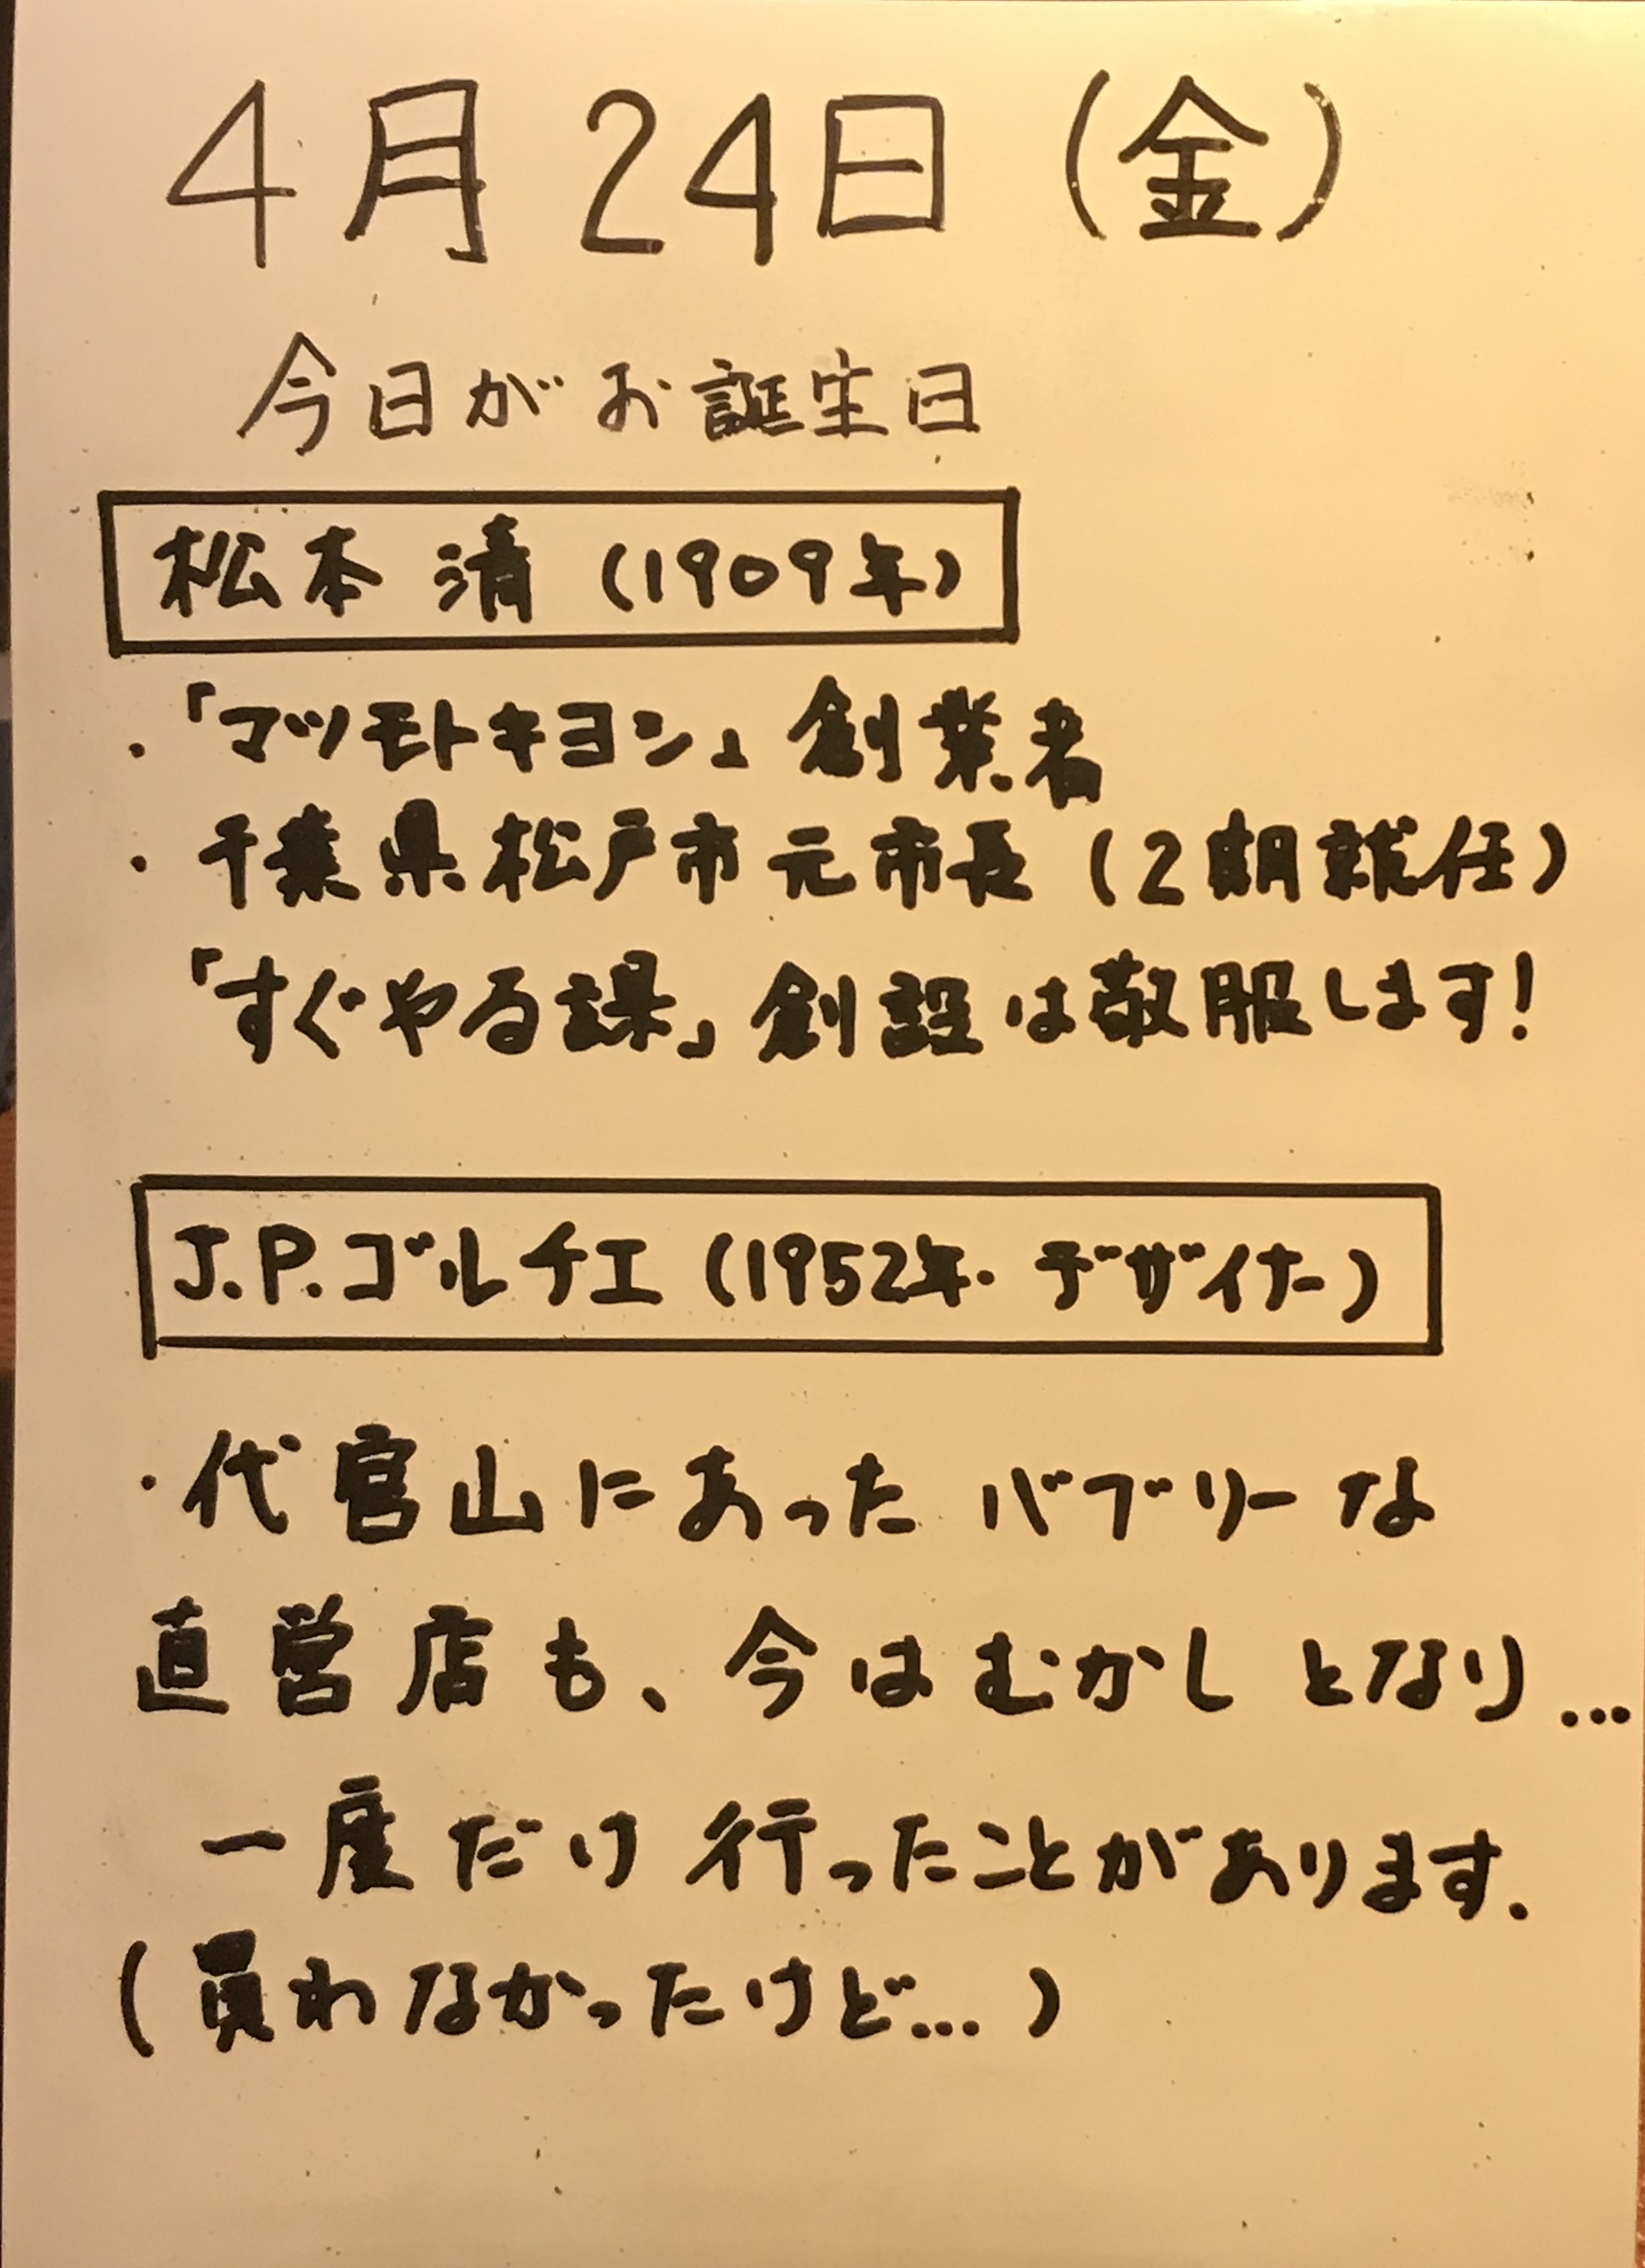 4月24日(金)
今日がお誕生日
松本 清(1909年)
・「マツモトキヨシ」創業者
・千葉県松戸市元市長(2期就任)
「すぐやる課」創設は敬服します!
J.P.ゴルチエ(1952年・デザイナー)
・代官山にあったバブリーな
直営店も、今はむかしとなり…
一度だけ行ったことがあります.
(買わなかったけど…)